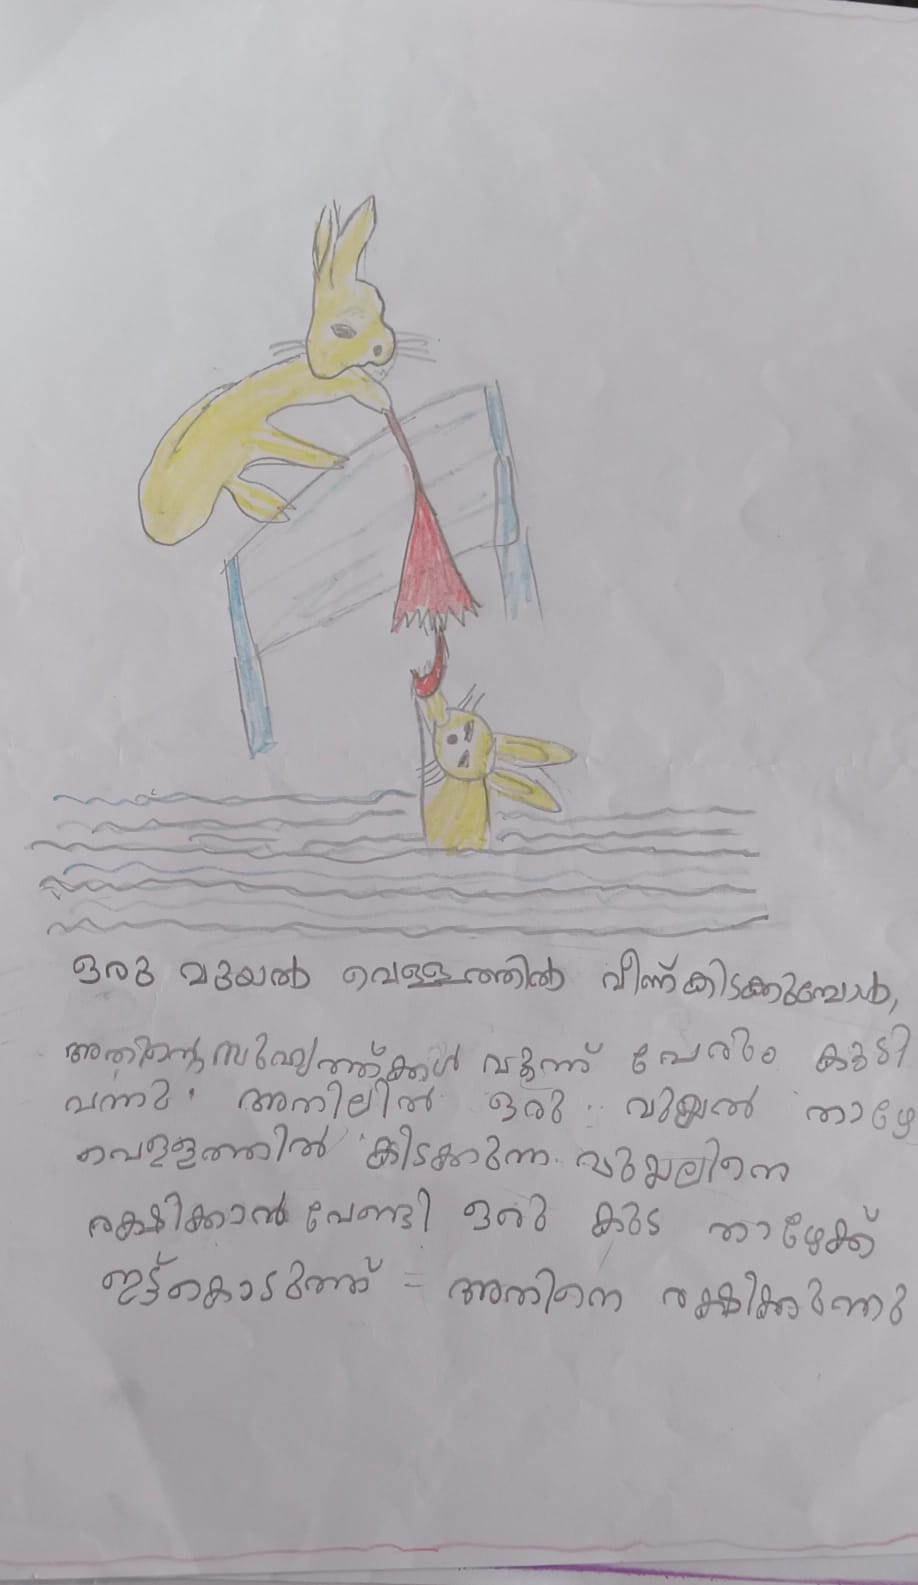 ഒരു മുയൽ വെള്ളത്തിൽ വീണ്കിടക്കുമ്പോൾ,
അതിന്റെ സുഹൃത്ത്ക്കൾ മൂന്ന് പേരും കൂടി
വന്നു. അതിലിൽ ഒരു മുയൽ താഴേ
വെള്ളത്തിൽ കിടക്കുന്ന മുയലിനെ
രക്ഷിക്കാൻ വേണ്ടി ഒരു കുട താഴേക്ക്
ഇട്ട്കൊടുത്ത് = അതിനെ രക്ഷിക്കുന്നു